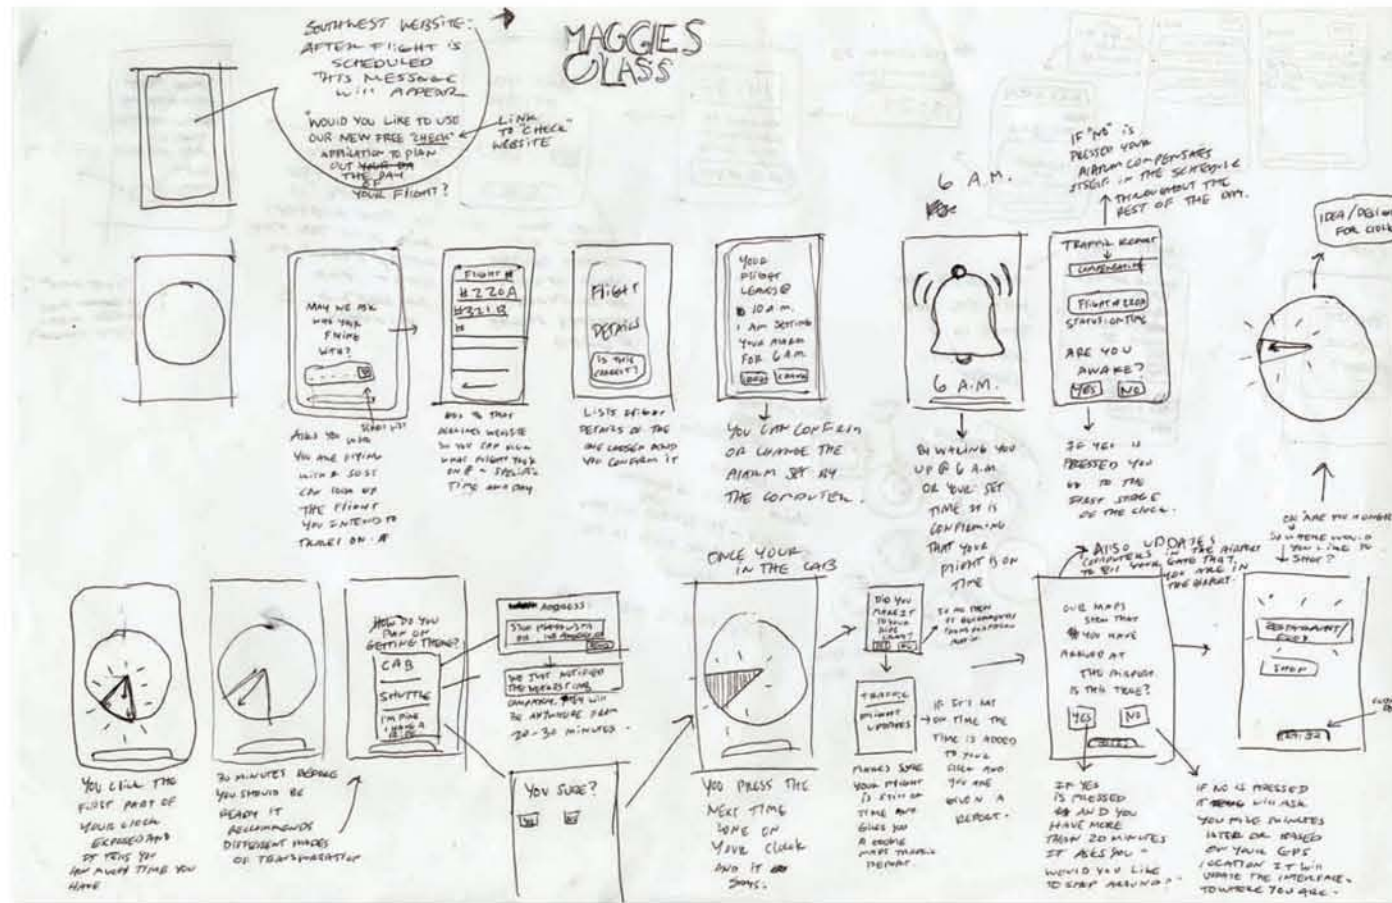 SOUTHWEST WEBSITE:
AFTER FLIGHT IS
SCHEDULED
THIS MESSAGE
WILL APPEAR
"WOULD YOU LIKE TO USE
OUR NEW FREE "CHECK"
APPLICATION TO PLAN
OUT
THE DAY
OF
YOUR FLIGHT?
LINK
TO "CHECK"
WEBSITE
MAGGIES
GLASS
6 A.M.
IF "NO" IS
PRESSED YOUR
ALARM COMPENSATES
ITSELF IN THE SCHEDULE
THROUGHOUT THE
REST OF THE DAY.
IDEA/DESIGN
FOR CLOCK
MAY WE ASK
WHO YOUR
FLYING
WITH?
ASKS YOU WHO
YOU ARE FLYING
WITH & SO IT
CAN LOOK UP
THE FLIGHT
YOU INTEND TO
TRAVEL ON.
FLIGHT #
#220A
#321B
#
TIME AND DAY
FLIGHT
DETAILS
IS THIS
CORRECT?
LISTS FLIGHT
DETAILS OF THE
ONE CHOSEN AND
YOU CONFIRM IT
YOUR
FLIGHT
LEAVES @
10 A.M.
I AM SETTING
YOUR ALARM
FOR 6 A.M.
YOU CAN CONFIRM
OR CHANGE THE
ALARM SET BY
THE COMPUTER.
6 A.M.
BY WAKING YOU
UP @ 6 A.M
OR YOUR SET
TIME IT IS
CONFIRMING
THAT YOUR
FLIGHT IS ON
TIME
TRAFFIC REPORT
FLIGHT # 220A
STATUS: ON TIME
ARE YOU
AWAKE?
YES NO
IF YES IS
PRESSED YOU
GO TO THE
FIRST STAGE
OF THE CLOCK.
SO WHERE WOULD
YOU LIKE TO
SHOP?
YOU CLICK THE
FIRST PART OF
YOUR CLOCK
EXPOSED AND
IT TELLS YOU
HOW MUCH TIME YOU
HAVE
30 MINUTES BEFORE
YOU SHOULD BE
READY IT
RECOMMENDS
DIFFERENT MODES
OF TRANSPORTATION
HOW DO YOU
PLAN ON
GETTING THERE?
CAB
SHUTTLE
I'M FINE
I HAVE A
ADDRESS:
WE JUST NOTIFIED
THE NEAREST CAB
COMPANY. THEY WILL
BE ANYWHERE FROM
20-30 MINUTES.
YOU SURE?
ONCE YOUR
IN THE CAB
YOU PRESS THE
NEXT TIME
ZONE ON
YOUR CLOCK
AND IT
SAYS:
DID YOU
MAKE IT
TO YOUR
TRAFFIC
FLIGHT
UPDATES
MAKES SURE
YOUR FLIGHT
IS STILL ON
TIME AND
GIVES YOU
A GOOGLE
MAPS TRAFFIC
REPORT.
IF IT'S NOT
ON TIME THE
TIME IS ADDED
TO YOUR
CLOCK AND
YOU ARE
GIVEN A
REPORT.
ALSO UPDATES
COMPUTERS IN THE AIRPORT
TO TELL YOUR GATE THAT
YOU ARE IN
THE AIRPORT.
OUR MAPS
SHOW THAT
YOU HAVE
ARRIVED AT
THE AIRPORT.
IS THIS TRUE?
YES NO
IF YES
IS PRESSED
AND YOU
HAVE MORE
THEN 20 MINUTES
IT ASKS YOU -
WOULD YOU LIKE
TO SHOP AROUND?
IF NO IS PRESSED
IT WILL ASK
YOU FIVE MINUTES
LATER OR BASED
ON YOUR GPS
LOCATION IT WILL
UPDATE THE INTERFACE
TO WHERE YOU ARE.
RESTAURANT/
FOOD
SHOP